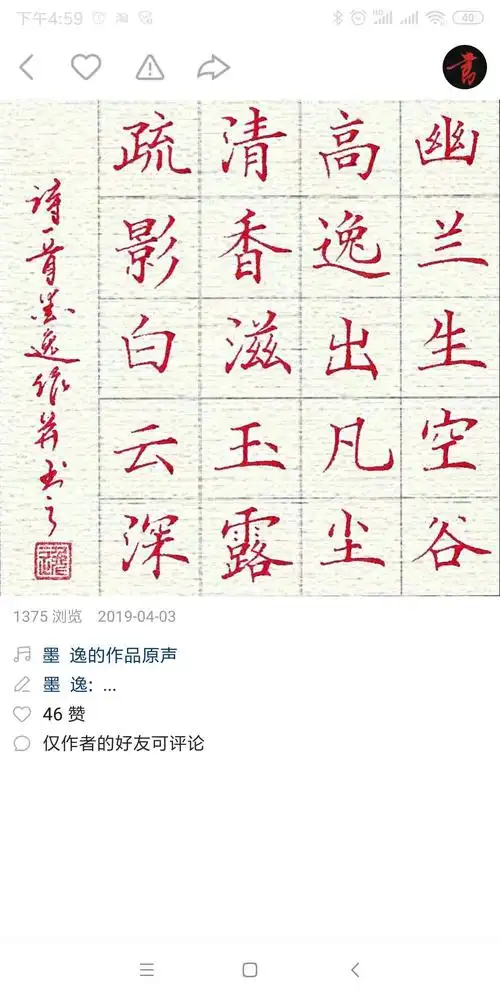 下午4:59
40
幽兰生空谷
高逸出凡尘
清香滋玉露
疏影白云深
诗一首墨逸作并书之
1375 浏览 2019-04-03
墨 逸的作品原声
墨 逸: ...
46 赞
仅作者的好友可评论